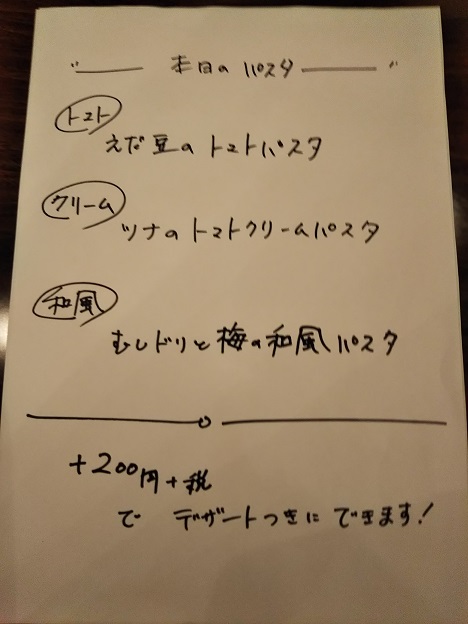 本日のパスタ
トマト
えだ豆のトマトパスタ
クリーム
ツナのトマトクリームパスタ
和風
むしドリと梅の和風パスタ
+200円+税
で デザートつきにできます!